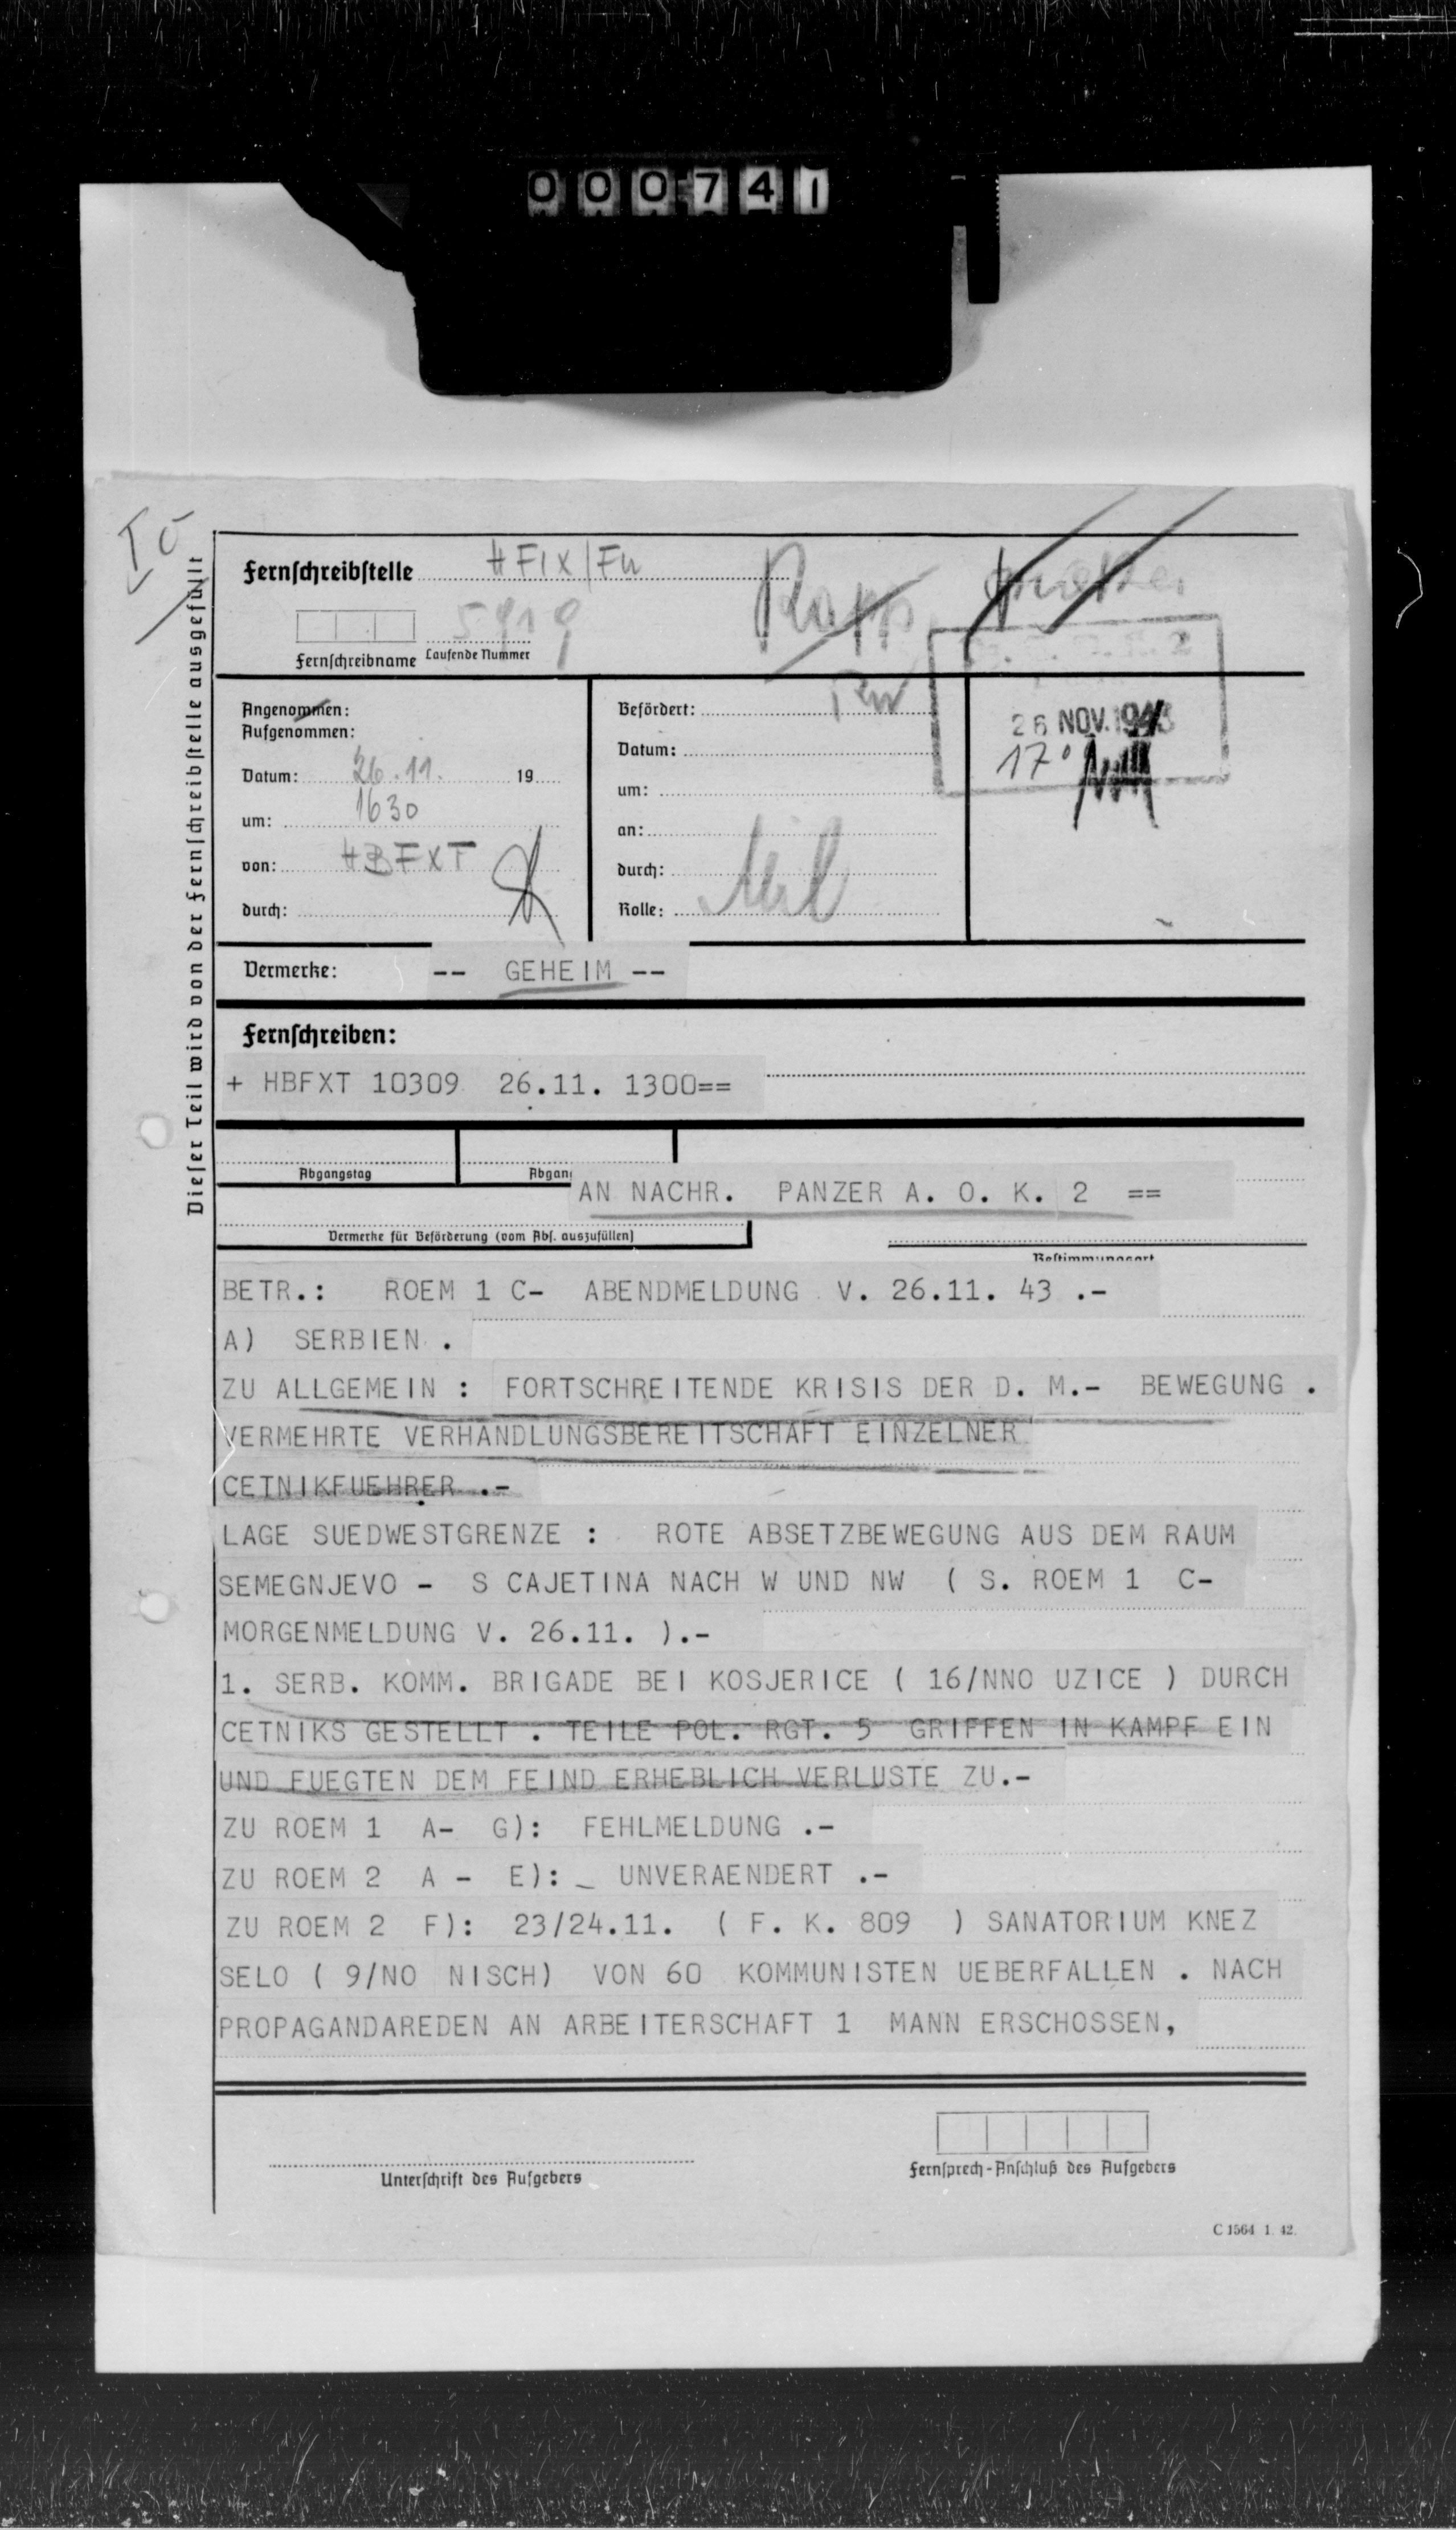 000741
Fernschreibstelle HFIX/Fu
5919
Fernschreibname Laufende Nummer
Angenommen:
Aufgenommen:
Datum: 26.11. 19
um: 1630
von: HBFXT
durch:
Befördert:
Datum:
um:
an:
durch:
Rolle:
26 NOV. 1943
17°
Dieser Teil wird von der Fernschreibstelle ausgefüllt
Vermerke: -- GEHEIM --
Fernschreiben:
+ HBFXT 10309 26.11. 1300==
Abgangstag
AN NACHR. PANZER A. O. K. 2 ==
Vermerke für Beförderung (vom Abs. auszufüllen)
Bestimmungsort
BETR.: ROEM 1 C- ABENDMELDUNG V. 26.11. 43 .-
A) SERBIEN .
ZU ALLGEMEIN : FORTSCHREITENDE KRISIS DER D. M.- BEWEGUNG .
VERMEHRTE VERHANDLUNGSBEREITSCHAFT EINZELNER
CETNIKFUEHRER .-
LAGE SUEDWESTGRENZE : ROTE ABSETZBEWEGUNG AUS DEM RAUM
SEMEGNJEVO - S CAJETINA NACH W UND NW ( S. ROEM 1 C-
MORGENMELDUNG V. 26.11. ).-
1. SERB. KOMM. BRIGADE BEI KOSJERICE ( 16/NNO UZICE ) DURCH
CETNIKS GESTELLT . TEILE POL. RGT. 5 GRIFFEN IN KAMPF EIN
UND FUEGTEN DEM FEIND ERHEBLICH VERLUSTE ZU.-
ZU ROEM 1 A- G): FEHLMELDUNG .-
ZU ROEM 2 A - E): _ UNVERAENDERT .-
ZU ROEM 2 F): 23/24.11. ( F. K. 809 ) SANATORIUM KNEZ
SELO ( 9/NO NISCH) VON 60 KOMMUNISTEN UEBERFALLEN . NACH
PROPAGANDAREDEN AN ARBEITERSCHAFT 1 MANN ERSCHOSSEN,
Unterschrift des Aufgebers
Fernsprech-Anschluß des Aufgebers
C 1564 1. 42.